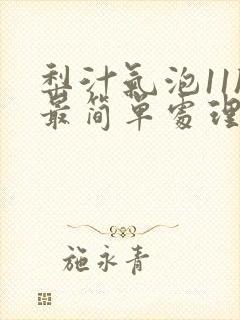 梨汁氣泡11
最简單處理
施永青